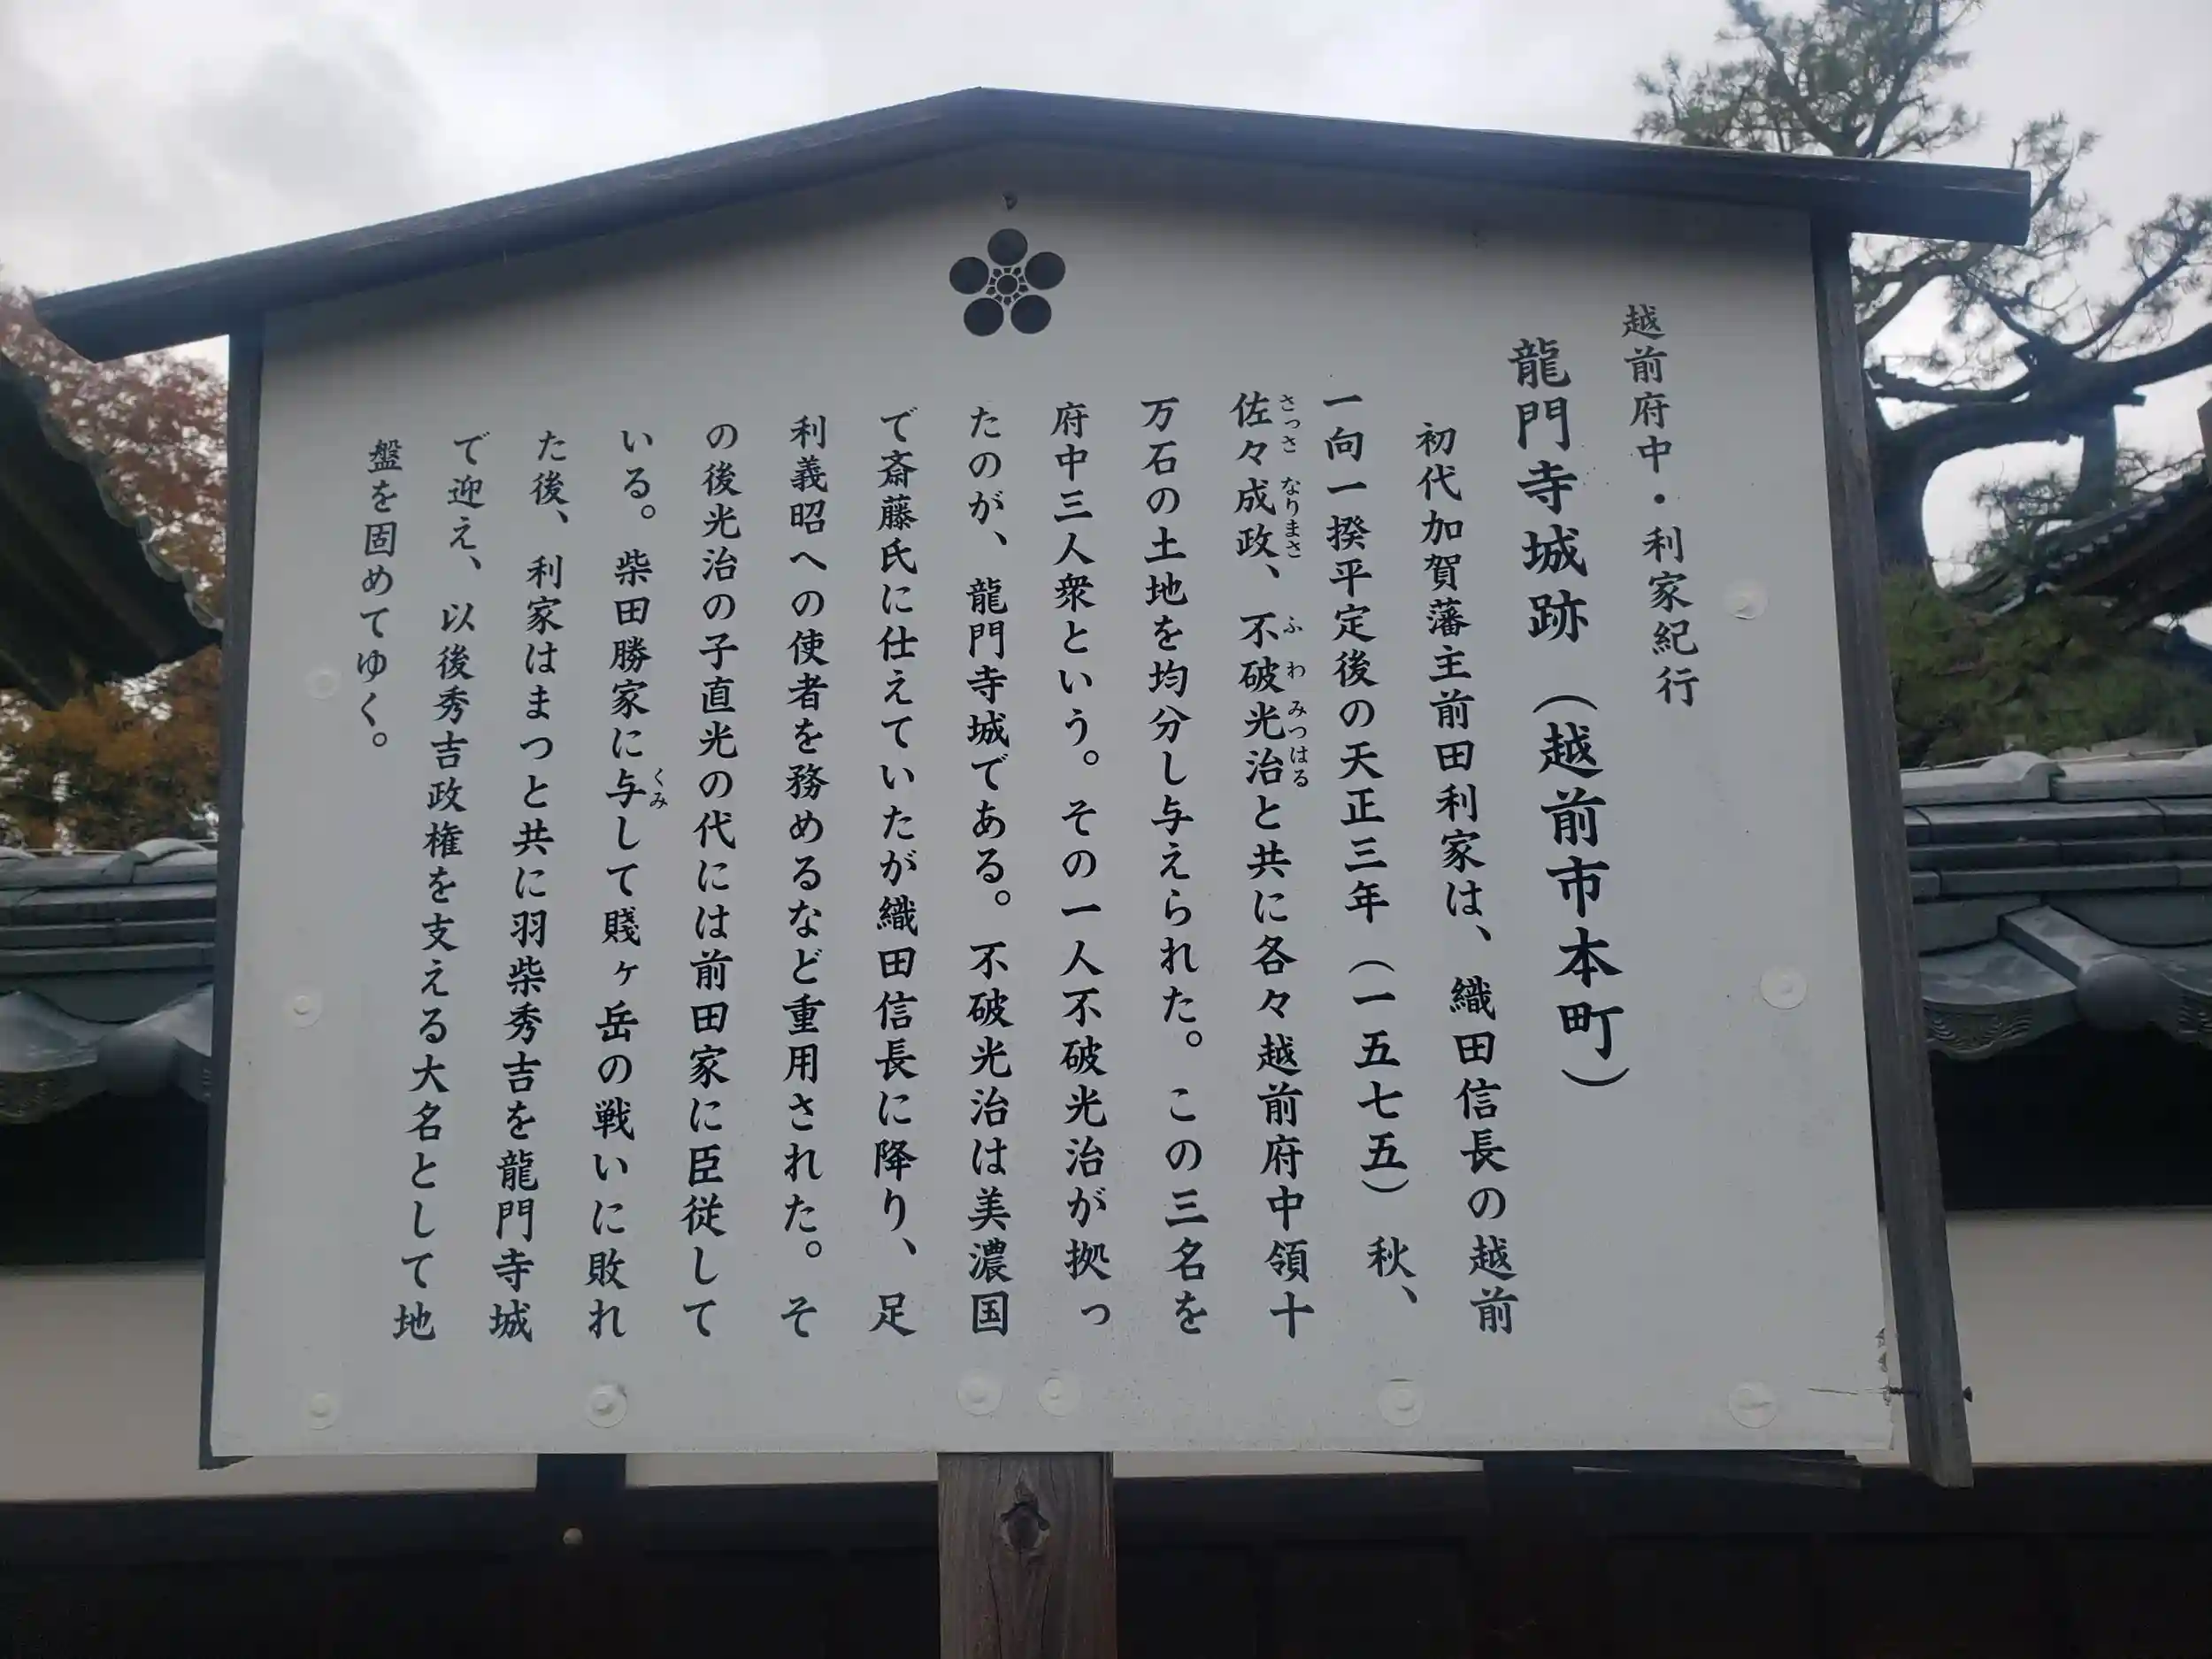 越前府中・利家紀行
龍門寺城跡（越前市本町）
初代加賀藩主前田利家は、織田信長の越前
一向一揆平定後の天正三年（一五七五）秋、
佐々成政、不破光治と共に各々越前府中領十
さっさ なりまさ ふわ みつはる
万石の土地を均分し与えられた。この三名を
府中三人衆という。その一人不破光治が拠っ
たのが、龍門寺城である。不破光治は美濃国
で斎藤氏に仕えていたが織田信長に降り、足
利義昭への使者を務めるなど重用された。そ
の後光治の子直光の代には前田家に臣従して
いる。柴田勝家に与して賤ヶ岳の戦いに敗れ
くみ
た後、利家はまつと共に羽柴秀吉を龍門寺城
で迎え、以後秀吉政権を支える大名として地
盤を固めてゆく。